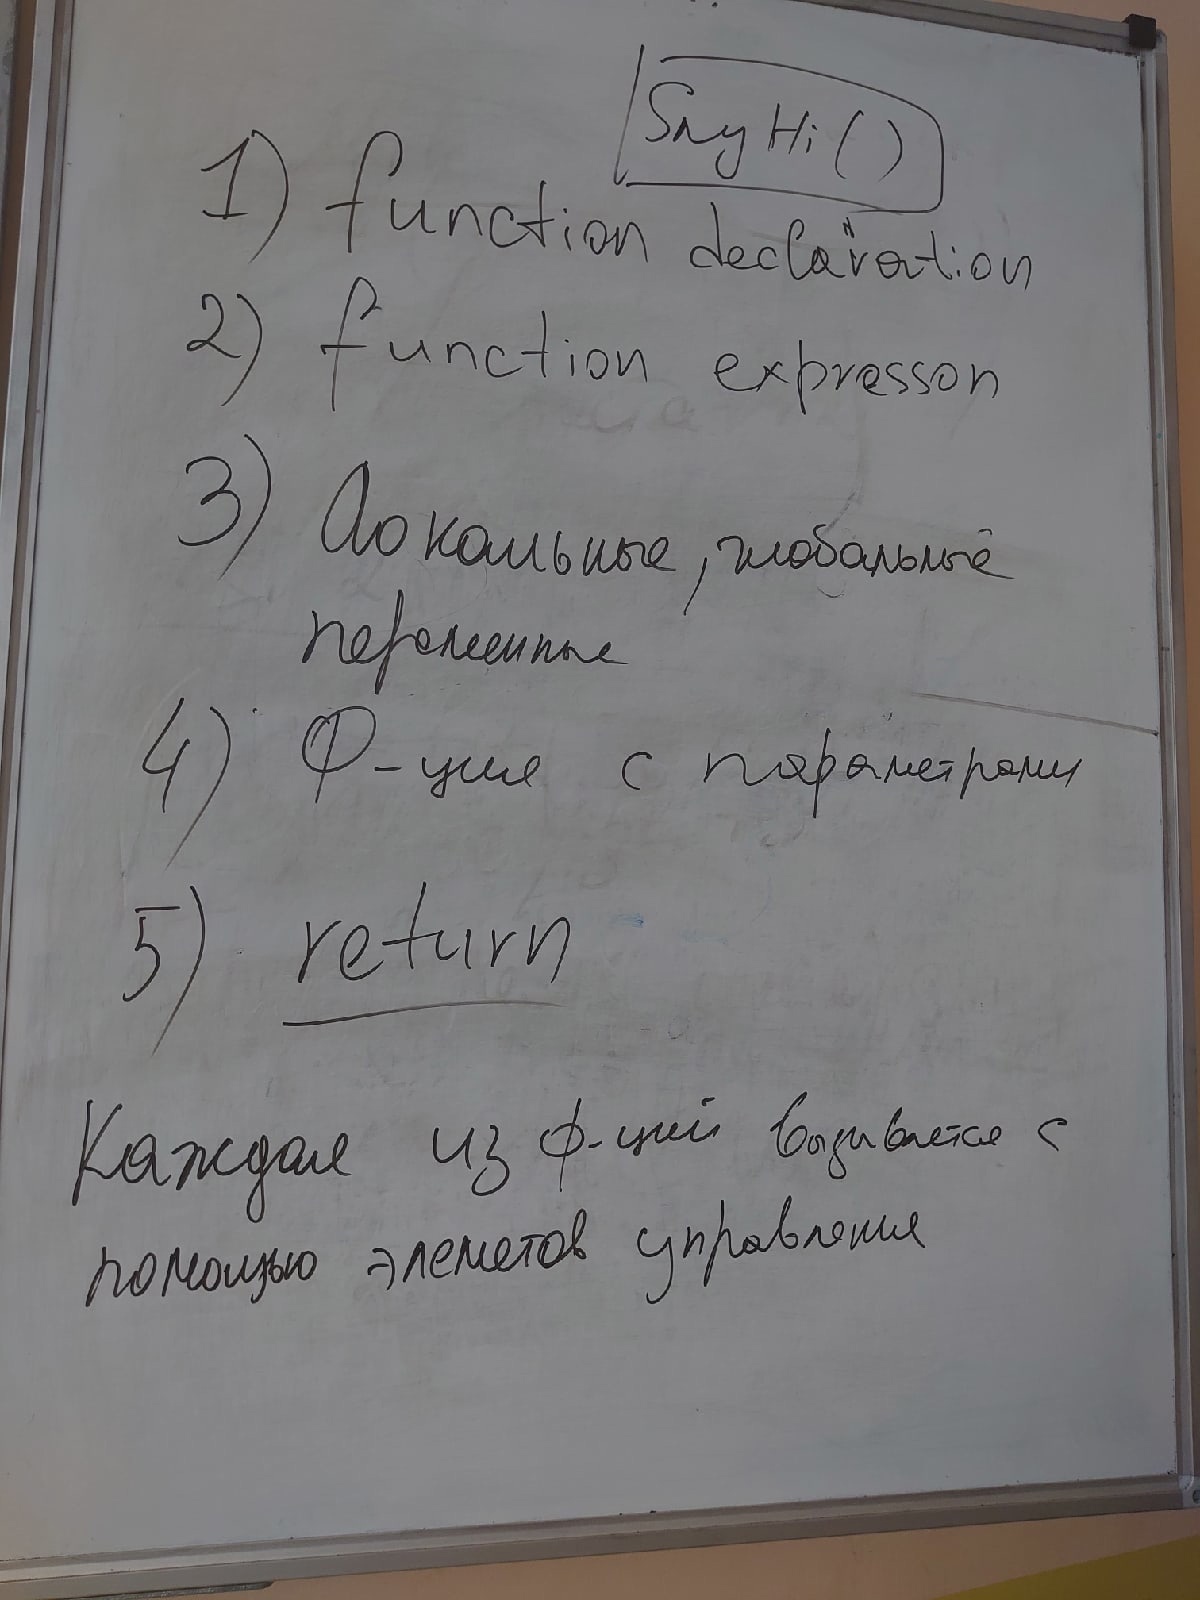 SayHi()
1) function declaration
2) function expresson
3) Локальные, глобальные
переменные
4) Ф-ция с параметрами
5) return
Каждая из ф-ций вызывается с
помощью элеметов управления